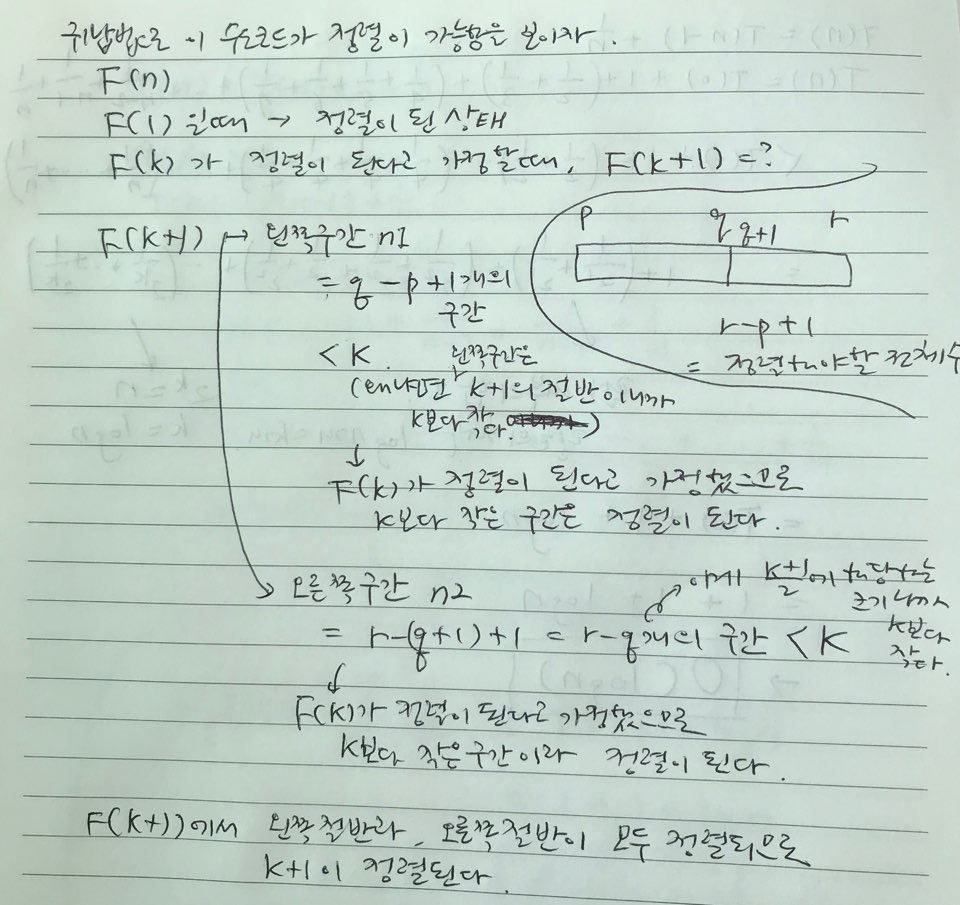 귀납법으로 이 수도코드가 정렬이 가능함을 보이자.
F(n)
F(1) 일때 → 정렬이 된 상태
F(k) 가 정렬이 된다고 가정할때, F(k+1) = ?
p q q+1 r
r-p+1
= 정렬해야할 전체수
F(k+1) → 왼쪽구간 n1
= q-p+1개의
구간
< K
(왜냐면 왼쪽구간은 k+1의 절반이니까
k보다 작다.)
↓
F(k)가 정렬이 된다고 가정했으므로
k보다 작은 구간은 정렬이 된다.
오른쪽구간 n2
= r-(q+1)+1 = r-q개의 구간 < K
이게 k+1/2에 해당하는
크기니까
k보다
작다.
↓
F(k)가 정렬이 된다고 가정했으므로
k보다 작은 구간이라 정렬이 된다.
F(k+1)에서 왼쪽절반과, 오른쪽절반이 모두 정렬되므로
k+1이 정렬된다.